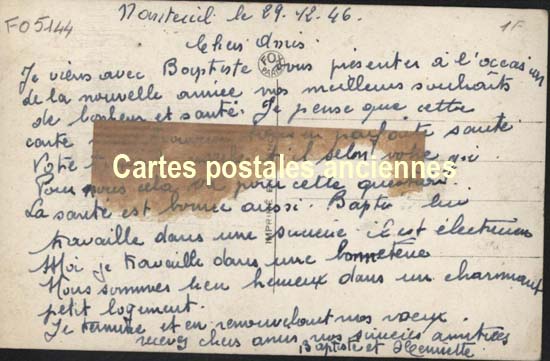 FO5144
le 29.12.46.
1F
Chers Amis
FOX
PARIS
Je viens avec Baptiste vous présenter à l'occasion
de la nouvelle année nos meilleurs souhaits
de bonheur et santé. Je pense que cette
carte vous en parfaite santé
Votre selon votre
Cartes postales anciennes
Pour nous cela va pour cette question.
La santé est bonne aussi. Bapt. lui
IMPRIMÉ
travaille dans une il est électricien
Moi je travaille dans une bonneterie
Nous sommes bien heureux dans un charmant
petit logement.
Je termine et en renouvelant nos voeux
recevez chers amis nos sincères amitiés
Baptiste et Henriette